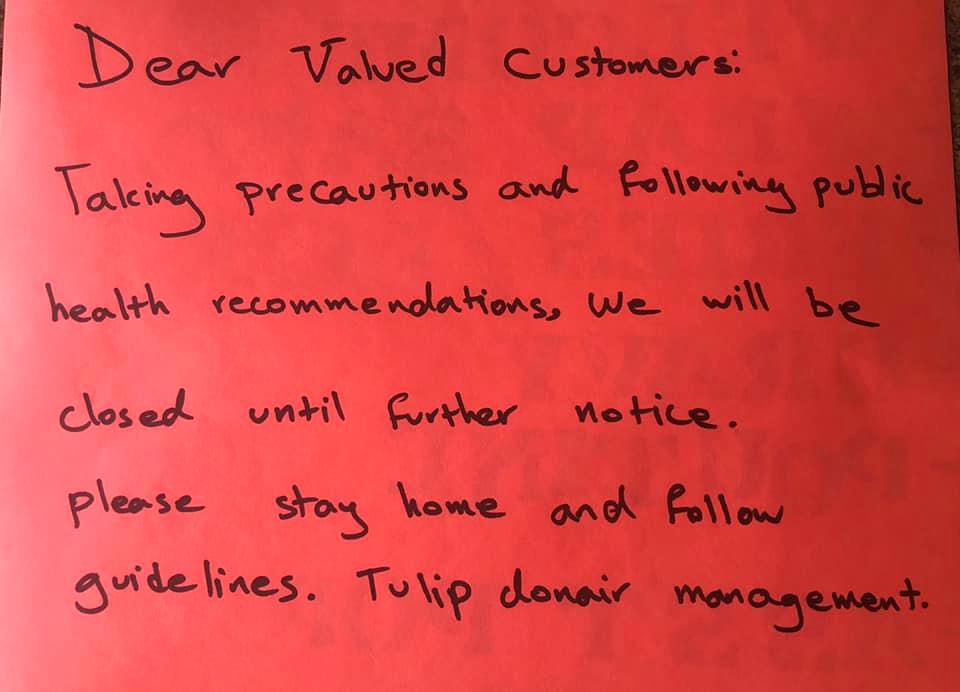 Dear Valued Customers:
Taking precautions and following public
health recommendations, we will be
closed until further notice.
please stay home and follow
guidelines. Tulip donair management.